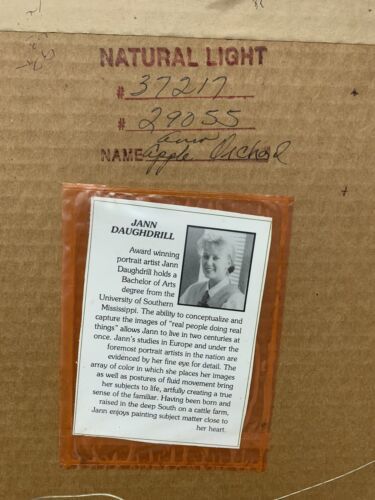 NATURAL LIGHT
# 37217
# 29055
NAME Apple Orchard
JANN
DAUGHDRILL
Award winning
portrait artist Jann
Daughdrill holds a
Bachelor of Arts
degree from the
University of Southern
Mississippi. The ability to conceptualize and
capture the images of "real people doing real
things" allows Jann to live in two centuries at
once. Jann's studies in Europe and under the
foremost portrait artists in the nation are
evidenced by her fine eye for detail. The
array of color in which she places her images
as well as postures of fluid movement bring
her subjects to life, artfully creating a true
sense of the familiar. Having been born and
raised in the deep South on a cattle farm,
Jann enjoys painting subject matter close to
her heart.